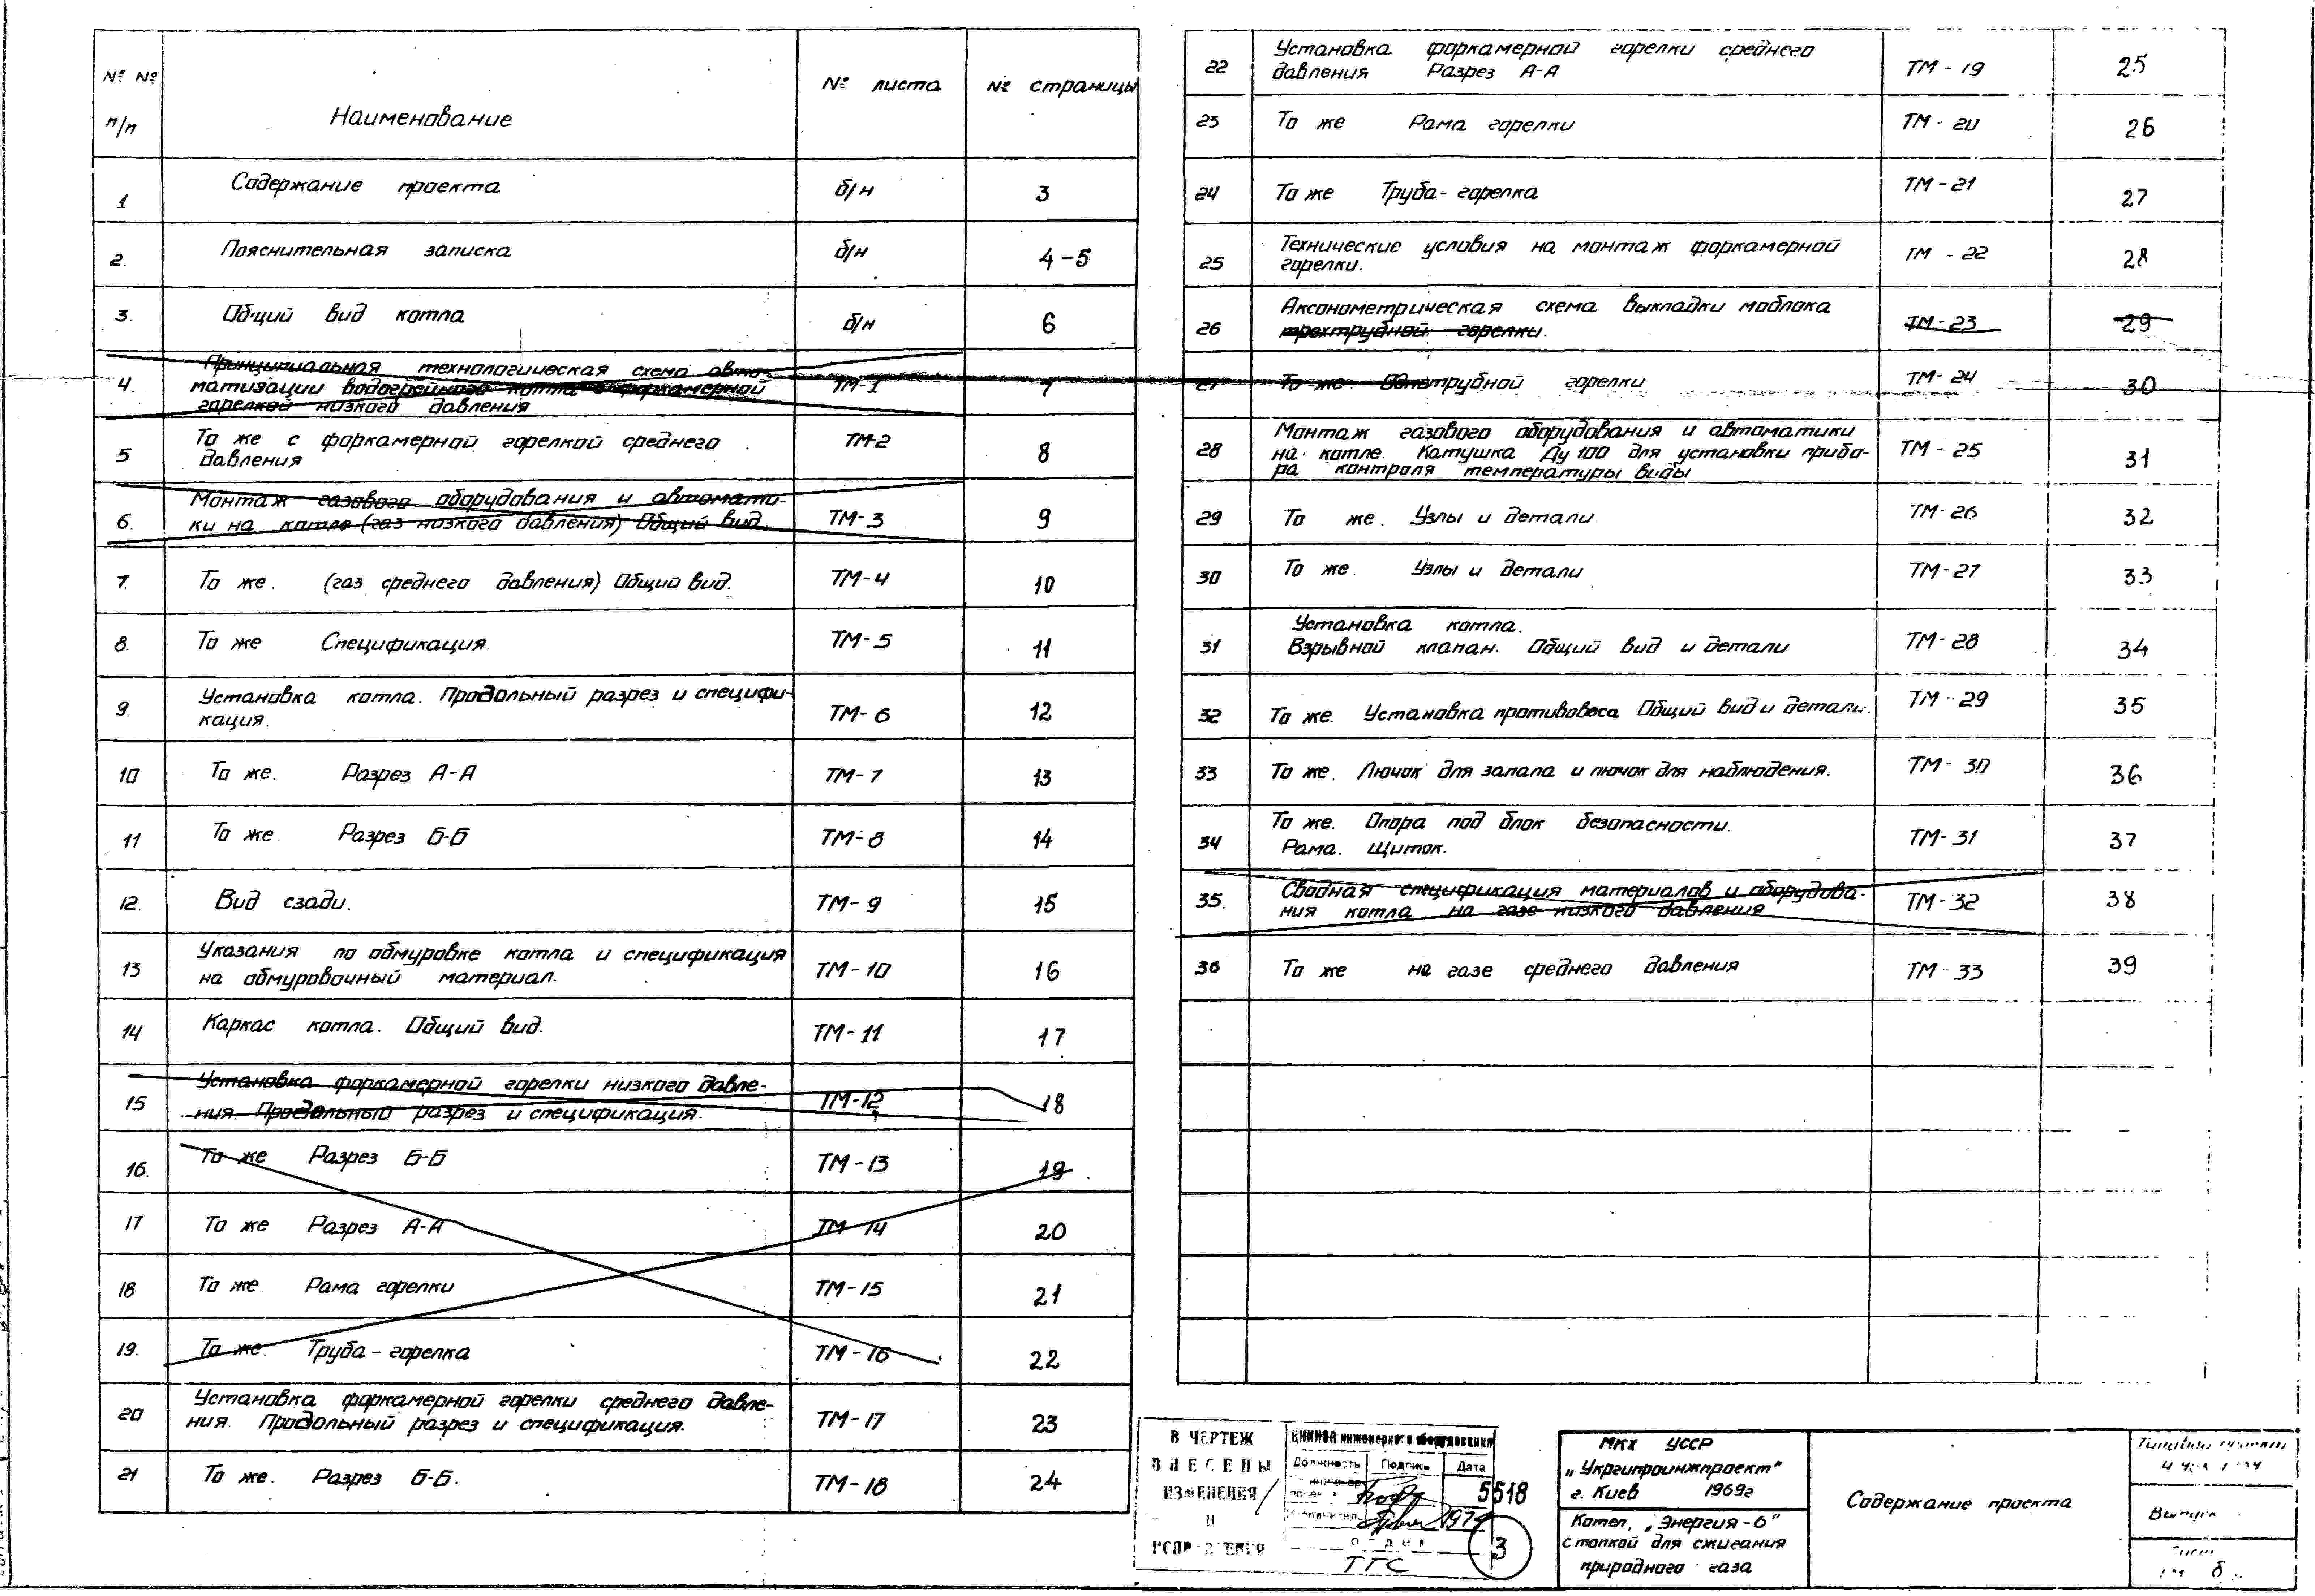 № №
п/п
Наименование
№ листа
№ страницы
1 Содержание проекта б/н 3
2. Пояснительная записка б/н 4-5
3. Общий вид котла б/н 6
Принципиальная технологическая схема авто-
4. матизации водогрейного котла с форкамерной ТМ-1 7
горелкой низкого давления
То же с форкамерной горелкой среднего ТМ-2
5 давления 8
Монтаж газового оборудования и автомати-
6. ки на котле (газ низкого давления) Общий вид. ТМ-3 9
7. То же. (газ среднего давления) Общий вид. ТМ-4 10
8. То же Спецификация. ТМ-5 11
Установка котла. Продольный разрез и специфи-
9. кация. ТМ-6 12
10 То же. Разрез А-А ТМ-7 13
11 То же. Разрез Б-Б ТМ-8 14
12. Вид сзади. ТМ-9 15
Указания по обмуровке котла и спецификация
13 на обмуровочный материал. ТМ-10 16
14 Каркас котла. Общий вид. ТМ-11 17
Установка форкамерной горелки низкого давле-
15 ния. Продольный разрез и спецификация. ТМ-12 18
16. То же Разрез Б-Б ТМ-13 19
17 То же Разрез А-А ТМ-14 20
18 То же. Рама горелки ТМ-15 21
19. То же. Труба-горелка ТМ-16 22
Установка форкамерной горелки среднего давле-
20 ния. Продольный разрез и спецификация. ТМ-17 23
21 То же. Разрез Б-Б. ТМ-18 24
Установка форкамерной горелки среднего
22 давления Разрез А-А ТМ-19 25
23 То же Рама горелки ТМ-20 26
24 То же Труба-горелка ТМ-21 27
Технические условия на монтаж форкамерной ТМ-22
25 горелки. 28
Аксонометрическая схема выкладки моблока
26 трехтрубной горелки. ТМ-23 29
27 То же. Однотрубной горелки ТМ-24 30
Монтаж газового оборудования и автоматики
28 на котле. Катушка Ду 100 для установки прибо- ТМ-25 31
ра контроля температуры воды
29 То же. Узлы и детали. ТМ-26 32
30 То же. Узлы и детали ТМ-27 33
Установка котла.
31 Взрывной клапан. Общий вид и детали ТМ-28 34
32 То же. Установка противовеса Общий вид и детали. ТМ-29 35
33 То же. Лючок для запала и лючок для наблюдения. ТМ-30 36
То же. Опора под блок безопасности.
34 Рама. Щиток. ТМ-31 37
Сводная спецификация материалов и оборудова-
35. ния котла на газе низкого давления ТМ-32 38
36 То же на газе среднего давления ТМ-33 39
В ЧЕРТЕЖ
ВНЕСЕНЫ
ИЗМЕНЕНИЯ
И
ИСПРАВЛЕНИЯ
ЦНИИЭП инженерного оборудования
Должность Подпись Дата
5518
1974
ТГС
3
МКХ УССР
„Укргипроинжпроект"
г. Киев 1969г
Котел „Энергия-6"
с топкой для сжигания
природного газа
Содержание проекта
Типовой проект
Выпуск
Лист